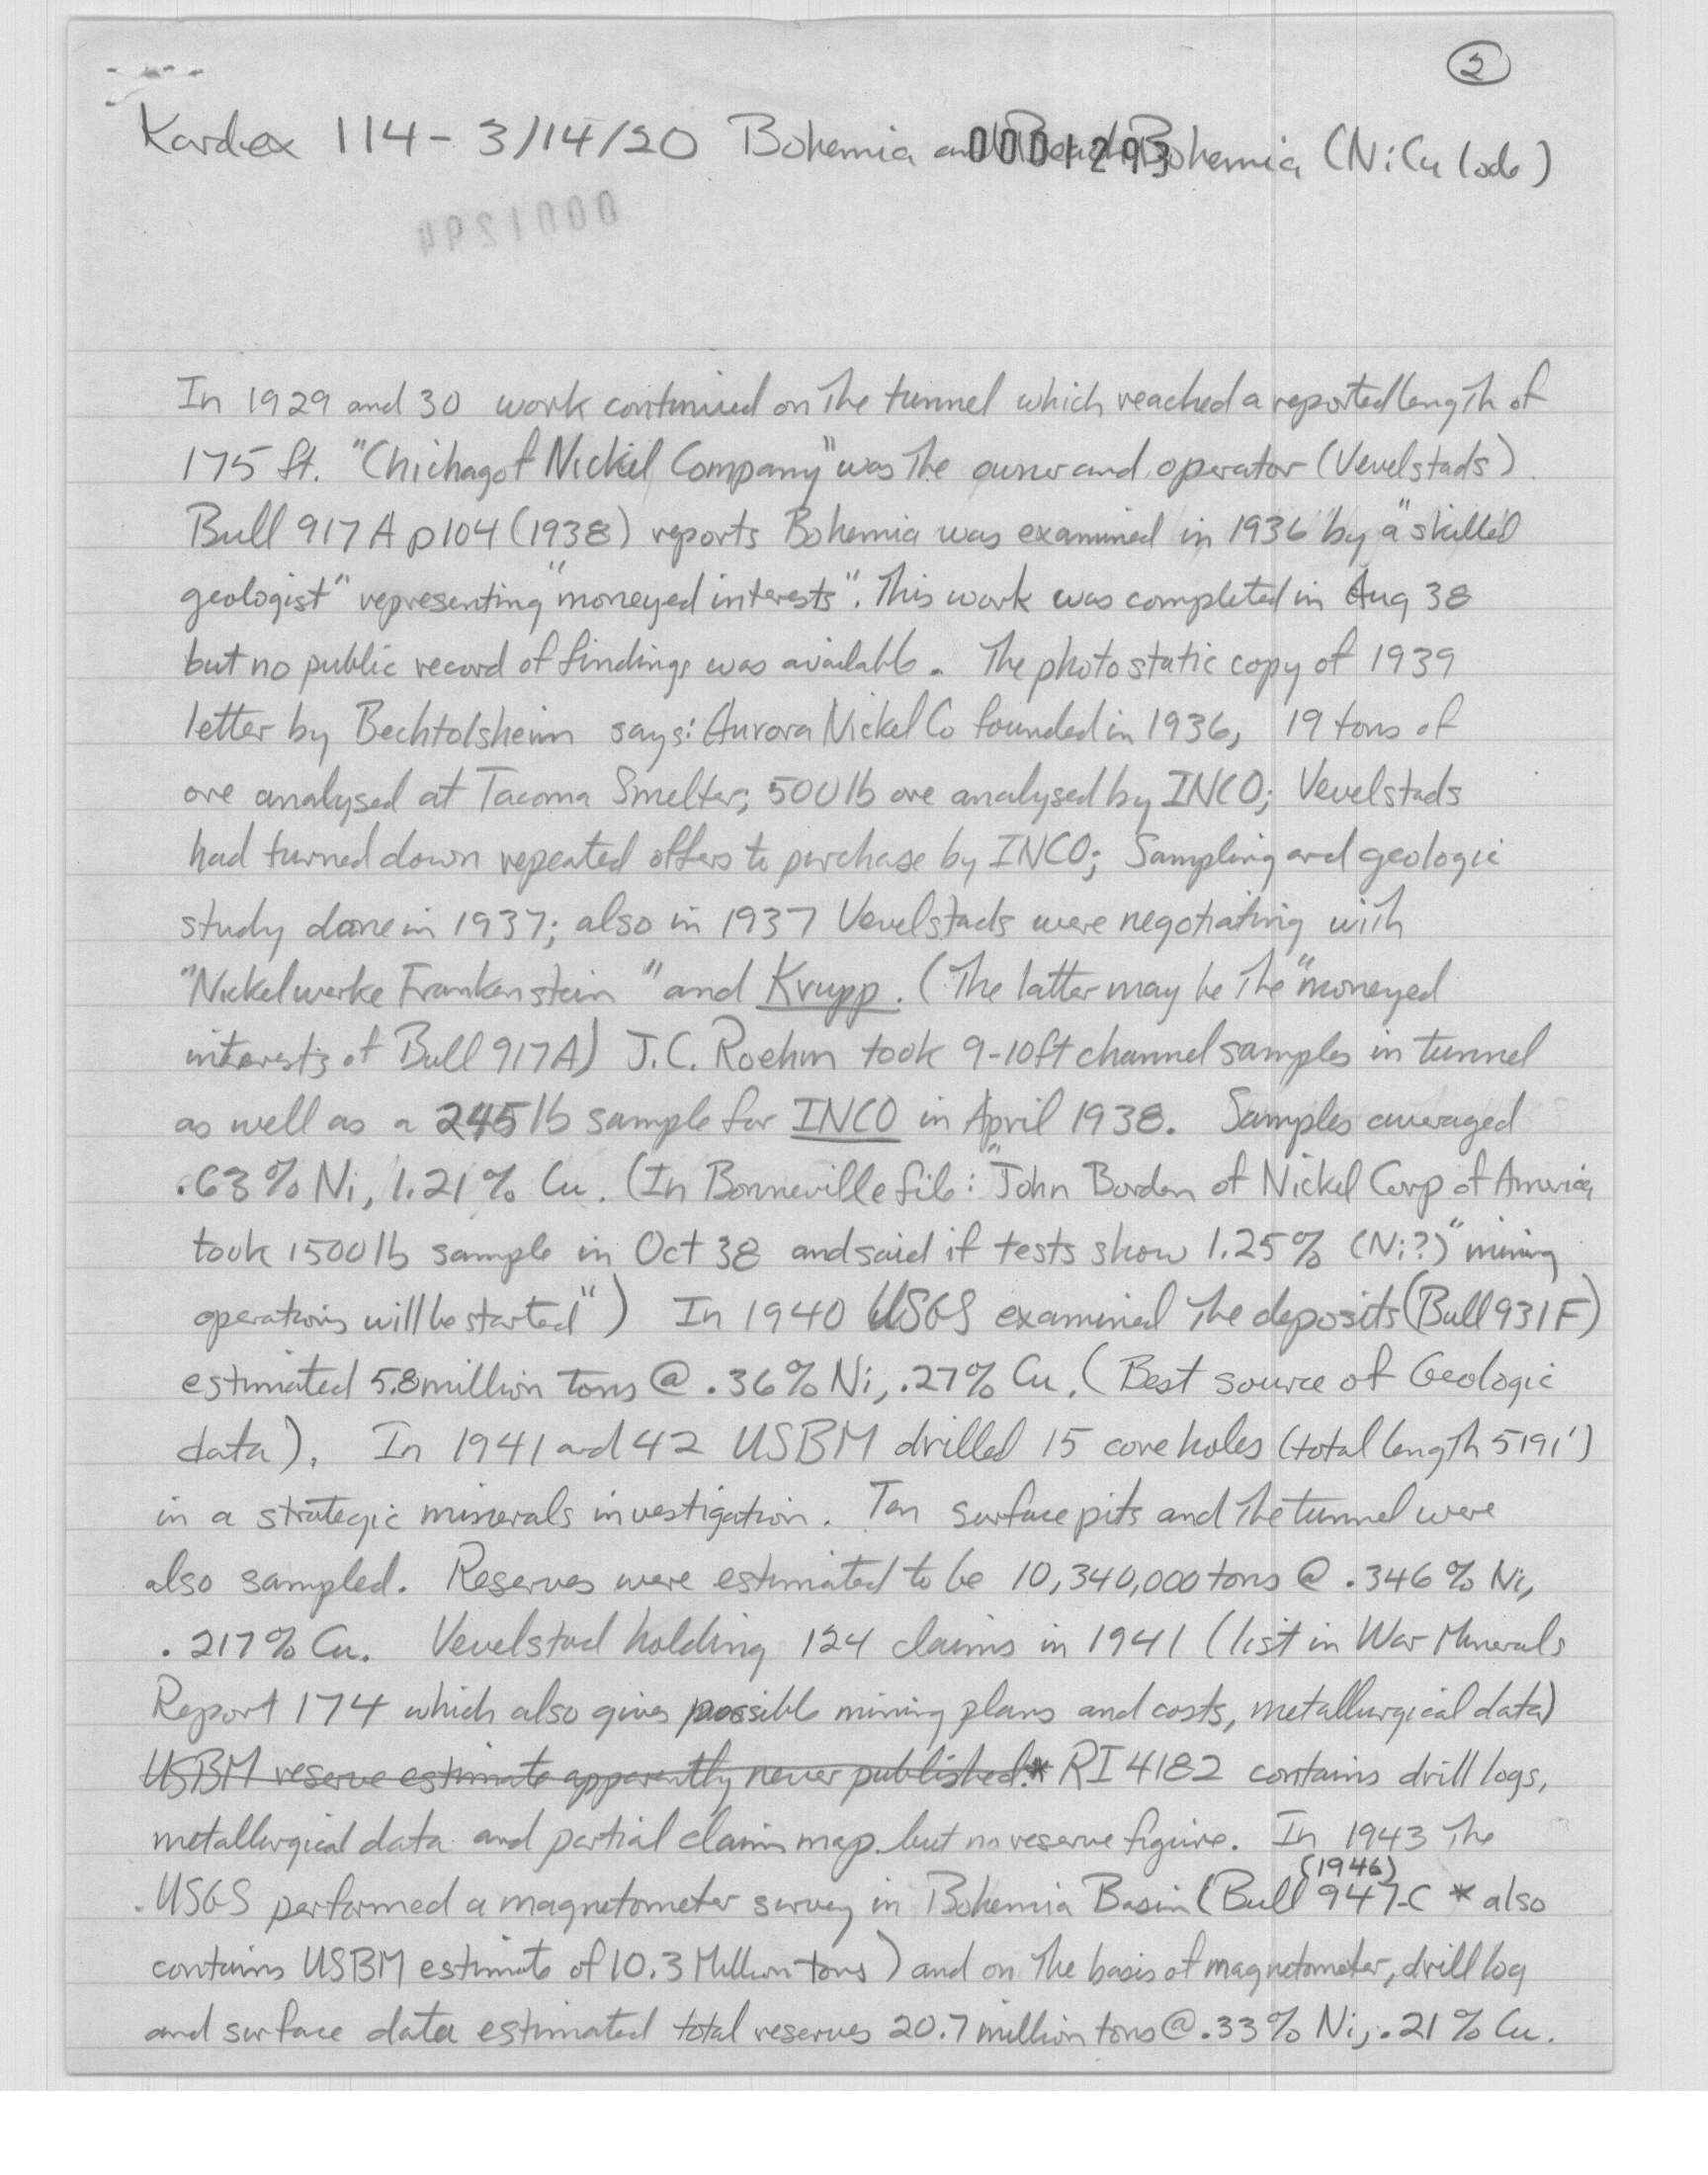 2
Kardex 114 - 3/14/20 Bohemia and Bohemia (NiCu lode)
0001293
0001294
In 1929 and 30 work continued on the tunnel which reached a reported length of
175 ft. "Chichagof Nickel Company" was the owner and operator (Vevelstads).
Bull 917A p104 (1938) reports Bohemia was examined in 1936 by a "skilled
geologist" representing "moneyed interests". This work was completed in Aug 38
but no public record of findings was available. The photostatic copy of 1939
letter by Bechtolsheim says: Aurora Nickel Co founded in 1936, 19 tons of
ore analysed at Tacoma Smelter; 500 lb ore analysed by INCO; Vevelstads
had turned down repeated offers to purchase by INCO; Sampling and geologic
study done in 1937; also in 1937 Vevelstads were negotiating with
"Nickelwerke Frankenstein" and Krupp. (The latter may be the "moneyed
interests of Bull 917A) J.C. Roehm took 9-10ft channel samples in tunnel
as well as a 245 lb sample for INCO in April 1938. Samples averaged
.63% Ni, 1.21% Cu. (In Bonneville file: "John Borden of Nickel Corp of America
took 1500 lb sample in Oct 38 and said if tests show 1.25% (Ni?)" mining
operations will be started") In 1940 USGS examined the deposits (Bull 931F)
estimated 5.8 million tons @ .36% Ni, .27% Cu. (Best source of Geologic
data). In 1941 and 42 USBM drilled 15 core holes (total length 5191')
in a strategic minerals investigation. Ten surface pits and the tunnel were
also sampled. Reserves were estimated to be 10,340,000 tons @ .346% Ni,
.217% Cu. Vevelstad holding 124 claims in 1941 (list in War Minerals
Report 174 which also gives possible mining plans and costs, metallurgical data)
USBM reserve estimate apparently never published.* RI 4182 contains drill logs,
metallurgical data and partial claim map but no reserve figure. In 1943 the
(1946)
USGS performed a magnetometer survey in Bohemia Basin (Bull 947-C * also
contains USBM estimate of 10.3 Million tons) and on the basis of magnetometer, drill log
and surface data estimated total reserves 20.7 million tons @ .33% Ni, .21% Cu.